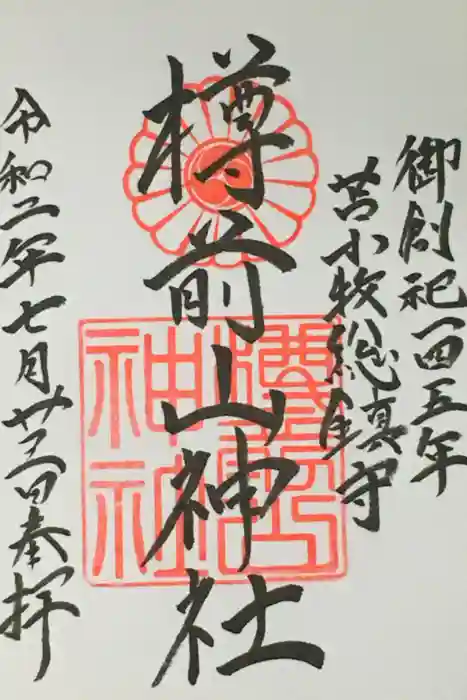 御創祀一四五年
苫小牧総鎮守
樽前山神社
令和二年七月廿三日奉拝
樽前山神社